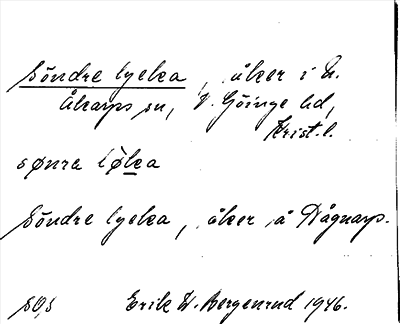 Söndre lycka, åker i N.
Åkarps sn, V. Göinge hd,
Krist.l.
sønra løka
Söndre lycka, åker å Vågnarp.
SO,S Erik W. Bergenrud 1946.